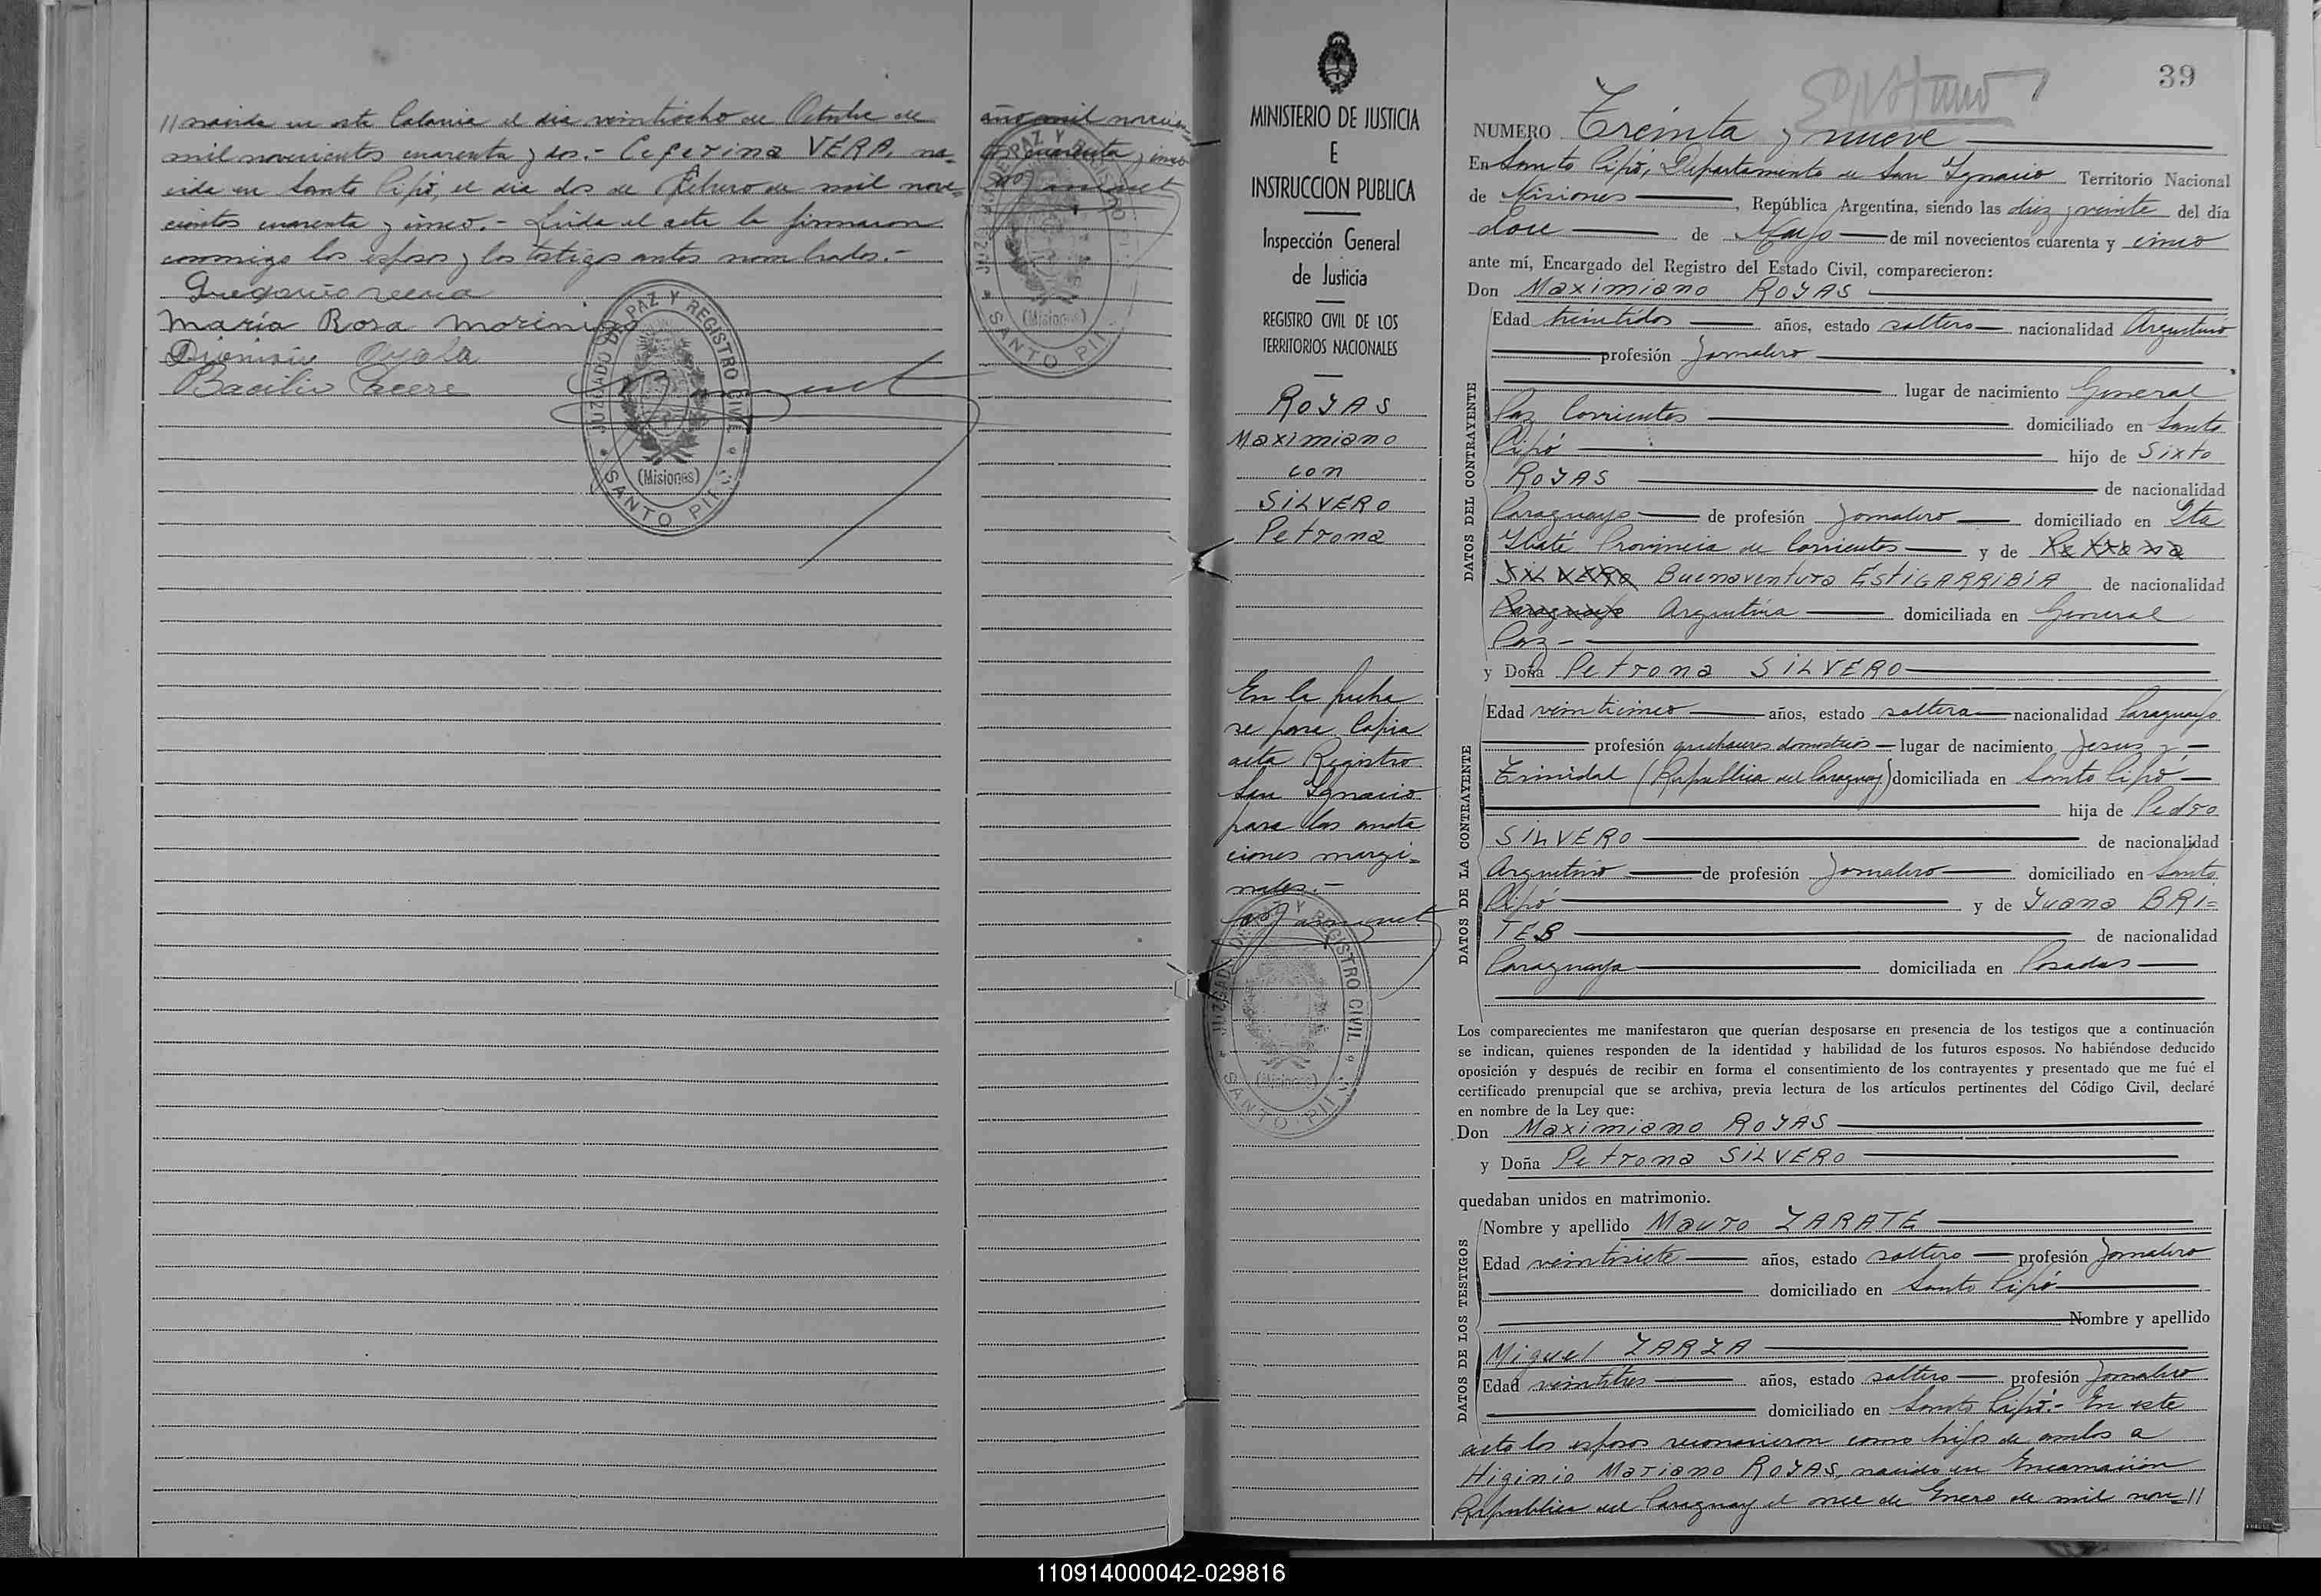 // nacida en esta Colonia el dia veintiocho de Octubre de
mil novecientos cuarenta y dos.- Ceferina VERA, na-
cida en Santo Pipó, el dia dos de Febrero de mil nove=
cientos cuarenta y cinco.- Leida el acta la firmaron
conmigo los esposos y los testigos antes nombrados.-
Gregorio Vera
Maria Rosa Morinigo
Dionisio Ayala
Bacilio Cacere
JUZGADO DE PAZ Y REGISTRO CIVIL
(Misiones)
SANTO PIPÓ
año mil novecien
tos cuarenta y cinco
JUZGADO DE PAZ Y REGISTRO CIVIL
(Misiones)
SANTO PIPÓ
MINISTERIO DE JUSTICIA
E
INSTRUCCION PUBLICA
Inspección General
de Justicia
REGISTRO CIVIL DE LOS
TERRITORIOS NACIONALES
ROJAS
Maximiano
con
SILVERO
Petrona
En la fecha
se pasa Copia
acta Registro
San Ignacio
para las anota
ciones margi=
nales.-
JUZGADO DE PAZ Y REGISTRO CIVIL
(Misiones)
SANTO PIPÓ
39
NUMERO Treinta y nueve
En Santo Pipó, Departamento de San Ignacio Territorio Nacional
de Misiones, República Argentina, siendo las diez y veinte del día
doce de Mayo de mil novecientos cuarenta y cinco
ante mí, Encargado del Registro del Estado Civil, comparecieron:
Don Maximiano ROJAS
DATOS DEL CONTRAYENTE
Edad treintidos años, estado soltero nacionalidad Argentino
profesión Jornalero
lugar de nacimiento General
Paz Corrientes domiciliado en Santo
Pipó hijo de Sixto
ROJAS de nacionalidad
Paraguayo de profesión Jornalero domiciliado en Ita
Ibaté Provincia de Corrientes y de Petrona
SILVERO Buenaventura ESTIGARRIBIA de nacionalidad
Paraguaya Argentina domiciliada en General
Paz-
y Doña Petrona SILVERO
DATOS DE LA CONTRAYENTE
Edad veinticinco años, estado soltera nacionalidad Paraguaya
profesión quehaceres domesticos lugar de nacimiento Jesus y
Trinidad (Republica del Paraguay) domiciliada en Santo Pipó
hija de Pedro
SILVERO de nacionalidad
Argentino de profesión Jornalero domiciliado en Santo
Pipó y de Juana BRI=
TES de nacionalidad
Paraguaya domiciliada en Posadas
Los comparecientes me manifestaron que querían desposarse en presencia de los testigos que a continuación
se indican, quienes responden de la identidad y habilidad de los futuros esposos. No habiéndose deducido
oposición y después de recibir en forma el consentimiento de los contrayentes y presentado que me fué el
certificado prenupcial que se archiva, previa lectura de los artículos pertinentes del Código Civil, declaré
en nombre de la Ley que:
Don Maximiano ROJAS
y Doña Petrona SILVERO
quedaban unidos en matrimonio.
DATOS DE LOS TESTIGOS
Nombre y apellido Mauro ZARATE
Edad veintisiete años, estado soltero profesión Jornalero
domiciliado en Santo Pipó
Nombre y apellido
Miguel ZARZA
Edad veintitres años, estado soltero profesión Jornalero
domiciliado en Santo Pipó.- En este
acto los esposos reconocieron como hijos de ambos a
Higinio Mariano ROJAS, nacido en Encarnación
Republica del Paraguay el once de Enero de mil nove= //
110914000042-029816